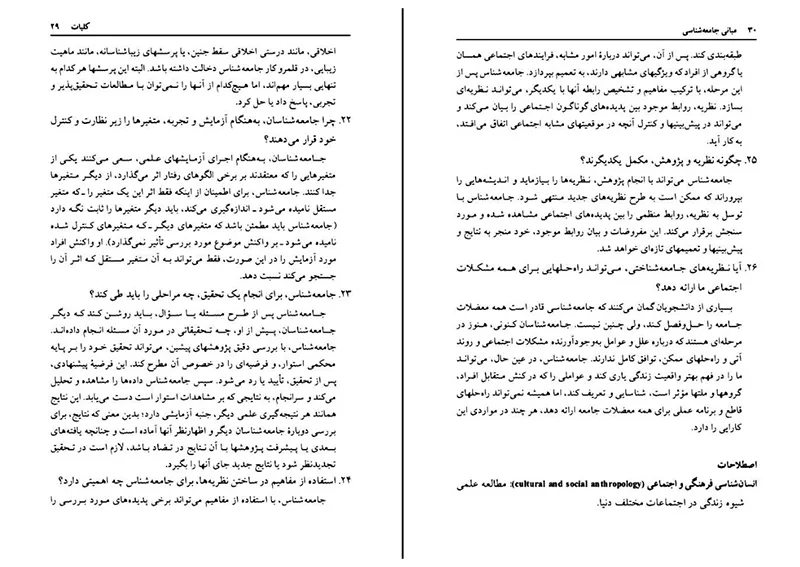 کلیات ۲۹
اخلاقی، مانند درستی اخلاقی سقط جنین، یا پرسشهای زیباشناسانه، مانند ماهیت
زیبایی، در قلمرو کار جامعه‌شناس دخالت داشته باشد. البته این پرسشها هر کدام به
تنهایی بسیار مهم‌اند، اما هیچ‌کدام از آنها را نمی‌توان با مطالعات تحقیق‌پذیر و
تجربی، پاسخ داد یا حل کرد.
۲۲. چرا جامعه‌شناسان، به‌هنگام آزمایش و تجربه، متغیرها را زیر نظارت و کنترل
خود قرار می‌دهند؟
جامعه‌شناسان، به‌هنگام اجرای آزمایشهای علمی، سعی می‌کنند یکی از
متغیرهایی را که معتقدند بر برخی الگوهای رفتار اثر می‌گذارد، از دیگر متغیرها
جدا کنند. جامعه‌شناس، برای اطمینان از اینکه فقط اثر این یک متغیر را ـ که متغیر
مستقل نامیده می‌شود ـ اندازه‌گیری می‌کند، باید دیگر متغیرها را ثابت نگه دارد
(جامعه‌شناس باید مطمئن باشد که متغیرهای دیگر ـ که متغیرهای کنترل شده
نامیده می‌شود ـ بر واکنش موضوع مورد بررسی تأثیر نمی‌گذارد). او واکنش افراد
مورد آزمایش را در این صورت، فقط می‌تواند به آن متغیر مستقل که اثر آن را
جستجو می‌کند نسبت دهد.
۲۳. جامعه‌شناس، برای انجام یک تحقیق، چه مراحلی را باید طی کند؟
جامعه‌شناس پس از طرح مسئله یا سؤال، باید روشن کند که دیگر
جامعه‌شناسان، پیش از او، چه تحقیقاتی در مورد آن مسئله انجام داده‌اند.
جامعه‌شناس، با بررسی دقیق پژوهشهای پیشین، می‌تواند تحقیق خود را بر پایه
محکمی استوار، و فرضیه‌ای را در خصوص آن مطرح کند. این فرضیهٔ پیشنهادی،
پس از تحقیق، تأیید یا رد می‌شود. سپس جامعه‌شناس داده‌ها را مشاهده و تحلیل
می‌کند و سرانجام، به نتایجی که بر مشاهدات استوار است دست می‌یابد. این نتایج
همانند هر نتیجه‌گیری علمی دیگر، جنبه آزمایشی دارد؛ بدین معنی که نتایج، برای
بررسی دوبارهٔ جامعه‌شناسان دیگر و اظهارنظر آنها آماده است و چنانچه یافته‌های
بعدی یا پیشرفت پژوهشها با آن نتایج در تضاد باشد، لازم است در تحقیق
تجدیدنظر شود یا نتایج جدید جای آنها را بگیرد.
۲۴. استفاده از مفاهیم در ساختن نظریه‌ها، برای جامعه‌شناس چه اهمیتی دارد؟
جامعه‌شناس، با استفاده از مفاهیم می‌تواند برخی پدیده‌های مورد بررسی را
۳۰ مبانی جامعه‌شناسی
طبقه‌بندی کند. پس از آن، می‌تواند دربارهٔ امور مشابه، فرایندهای اجتماعی همسان
یا گروهی از افراد که ویژگیهای مشابهی دارند، به تعمیم بپردازد. جامعه‌شناس پس از
این مرحله، با ترکیب مفاهیم و تشخیص رابطه آنها با یکدیگر، می‌تواند نظریه‌ای
بسازد. نظریه، روابط موجود بین پدیده‌های گوناگون اجتماعی را بیان می‌کند و
می‌تواند در پیش‌بینیها و کنترل آنچه در موقعیتهای مشابه اجتماعی اتفاق می‌افتد،
به کار آید.
۲۵. چگونه نظریه و پژوهش، مکمل یکدیگرند؟
جامعه‌شناس می‌تواند با انجام پژوهش، نظریه‌ها را بیازماید و اندیشه‌هایی را
بپروراند که ممکن است به طرح نظریه‌های جدید منتهی شود. جامعه‌شناس با
توسل به نظریه، روابط منظمی را بین پدیده‌های اجتماعی مشاهده شده و مورد
سنجش برقرار می‌کند. این مفروضات و بیان روابط موجود، خود منجر به نتایج و
پیش‌بینیها و تعمیمهای تازه‌ای خواهد شد.
۲۶. آیا نظریه‌های جامعه‌شناختی، می‌تواند راه‌حلهایی برای همه مشکلات
اجتماعی ما ارائه دهد؟
بسیاری از دانشجویان گمان می‌کنند که جامعه‌شناسی قادر است همه معضلات
جامعه را حل‌وفصل کند، ولی چنین نیست. جامعه‌شناسان کنونی، هنوز در
مرحله‌ای هستند که درباره علل و عوامل به‌وجودآورنده مشکلات اجتماعی و روند
آتی و راه‌حلهای ممکن، توافق کامل ندارند. جامعه‌شناس، در عین حال، می‌تواند
ما را در فهم بهتر واقعیت زندگی یاری کند و عواملی را که در کنش متقابل افراد،
گروهها و ملتها مؤثر است، شناسایی و تعریف کند، اما همیشه نمی‌تواند راه‌حلهای
قاطع و برنامه عملی برای همه معضلات جامعه ارائه دهد، هر چند در مواردی این
کارایی را دارد.
اصطلاحات
انسان‌شناسی فرهنگی و اجتماعی (cultural and social anthropology): مطالعه علمی
شیوه زندگی در اجتماعات مختلف دنیا.